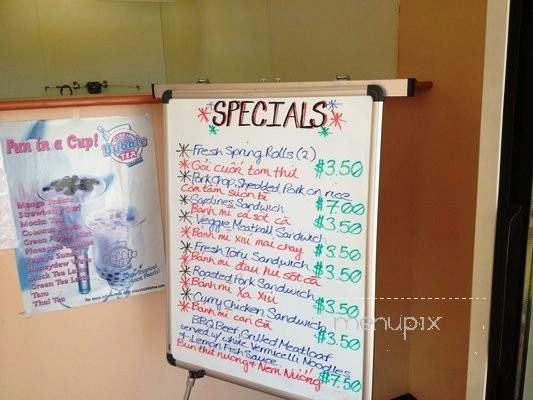 SPECIALS
Fresh Spring Rolls (2)
Gỏi cuốn tôm thịt $3.50
Porkchop, Shedded Pork on rice
Cơm tấm sườn bì $7.00
Sardines Sandwich
Bánh mì cá sốt cà $3.50
Veggie Meatball Sandwich
Bánh mì xíu mại chay $3.50
Fresh Tofu Sandwich
Bánh mì đậu hủ sốt cà $3.50
Roasted Pork Sandwich
Bánh mì Xá Xíu $3.50
Curry Chicken Sandwich
Bánh mì can Cà $3.50
BBQ Beef Grilled Meatloaf
served w/ white Vermicelli Noodles
+ Lemon Fish Sauce
Bún thịt nướng + Nem Nướng $7.50
Fun in a Cup!
Bubble
TEA
Mango
Strawberry
Mocha
Coconut
Green Apple
Pineapple
Papaya Sunrise
Honeydew
Black Tea
Green Tea
Taro
Thai Tea
menupix